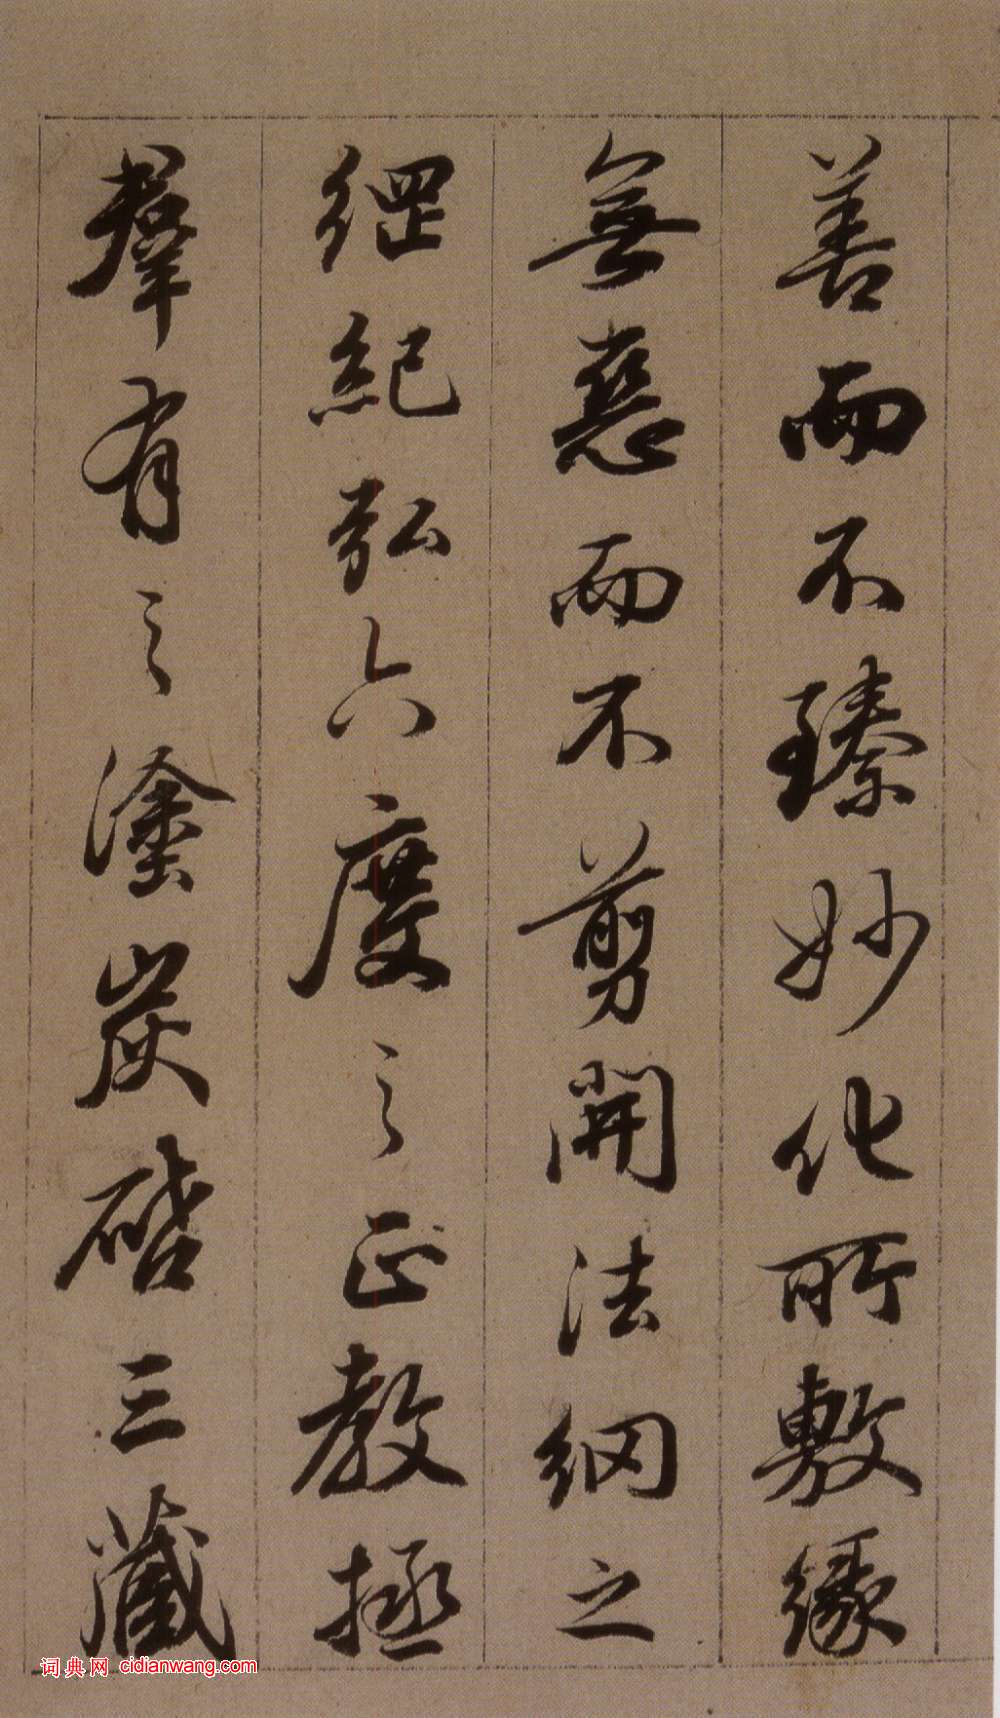 善而不臻妙化所敷缘
無惡而不剪開法網之
綱紀弘六度之正教拯
羣有之塗炭啓三藏
词典网 cidianwang.com